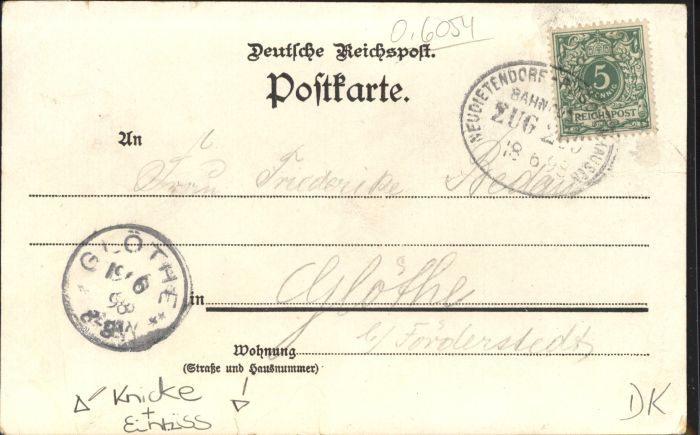 0.6054
Deutsche Reichspost.
Postkarte.
5
REICHSPOST
NEUDIETENDORF
BAHNPOST
ZUG
18 6 98
An
Frau Friederike
GLÖTHE
19 6
98
8-9 V
in Glöthe
b/ Förderstedt
Wohnung
(Straße und Hausnummer)
Knicke
+
Einriss
DK